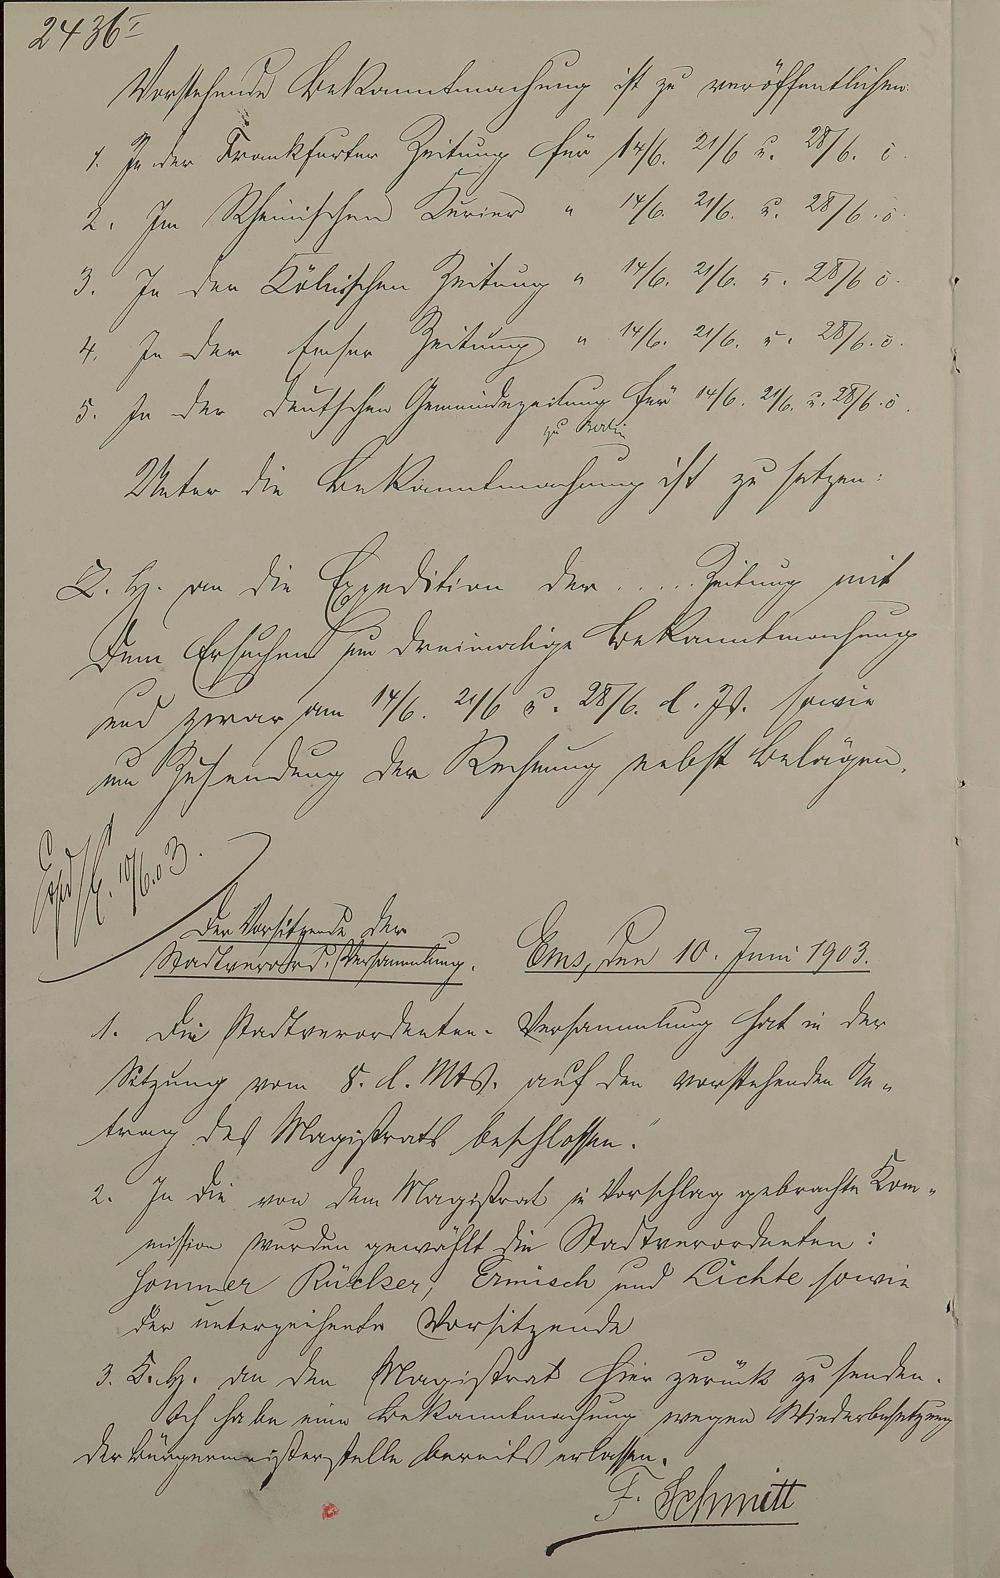 2436 I
Vorstehende Bekanntmachung ist zu veröffentlichen:
1. In der Frankfurter Zeitung für 14/6. 21/6 u. 28/6.
2. Im Rheinischen Kurier " 14/6. 21/6. u. 28/6.
3. In der Kölnischen Zeitung " 14/6. 21/6. u. 28/6
4. In der Emser Zeitung " 14/6. 21/6. u. 28/6.
5. In der deutschen Gemeindezeitung für 14/6. 21/6. u. 28/6.
zu Berlin
Unter die Bekanntmachung ist zu setzen:
an die Expedition der ..... Zeitung mit
dem Ersuchen um dreimalige Bekanntmachung
und zwar am 14/6. 21/6 u. 28/6. d. Js. sowie
um Zusendung der Rechnung nebst Belägen.
10/6.03.
Der Vorsitzende der
Stadtverord. Versammlung.
Ems, den 10. Juni 1903.
1. Die Stadtverordneten-Versammlung hat in der
Sitzung vom 8. d. Mts. auf den vorstehenden An-
trag des Magistrats beschlossen.
2. In die von dem Magistrat in Vorschlag gebrachte Kom-
mission wurden gewählt die Stadtverordneten:
Hommer Rücker, Ermisch und Lichte sowie
der unterzeichnete Vorsitzende
3. an den Magistrat hier zurück zu senden.
Ich habe eine Bekanntmachung wegen Wiederbesetzung
der Bürgermeisterstelle bereits erlassen.
F. Schmitt